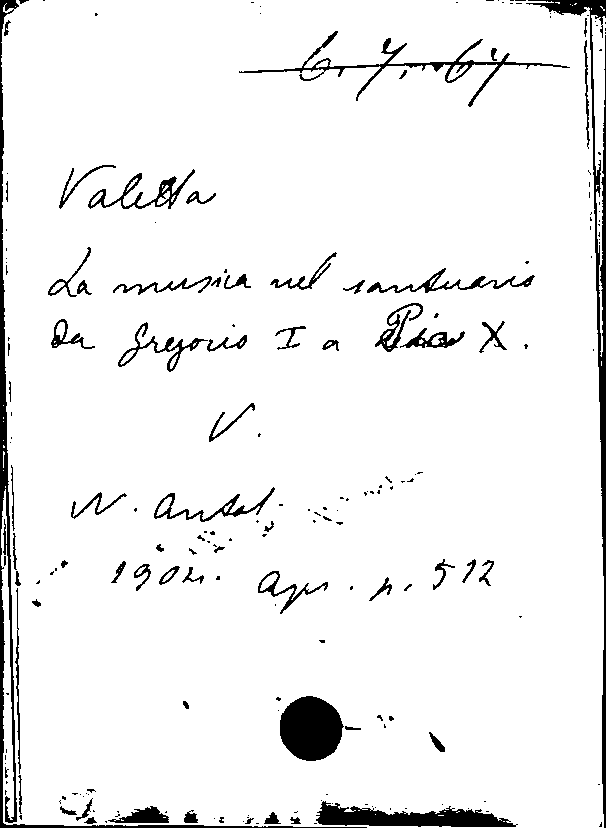 6.7.67
Valetta
La musica nel santuario
Da Gregorio I a Pio X.
V.
N. Antol.
1904. Apr. p. 512